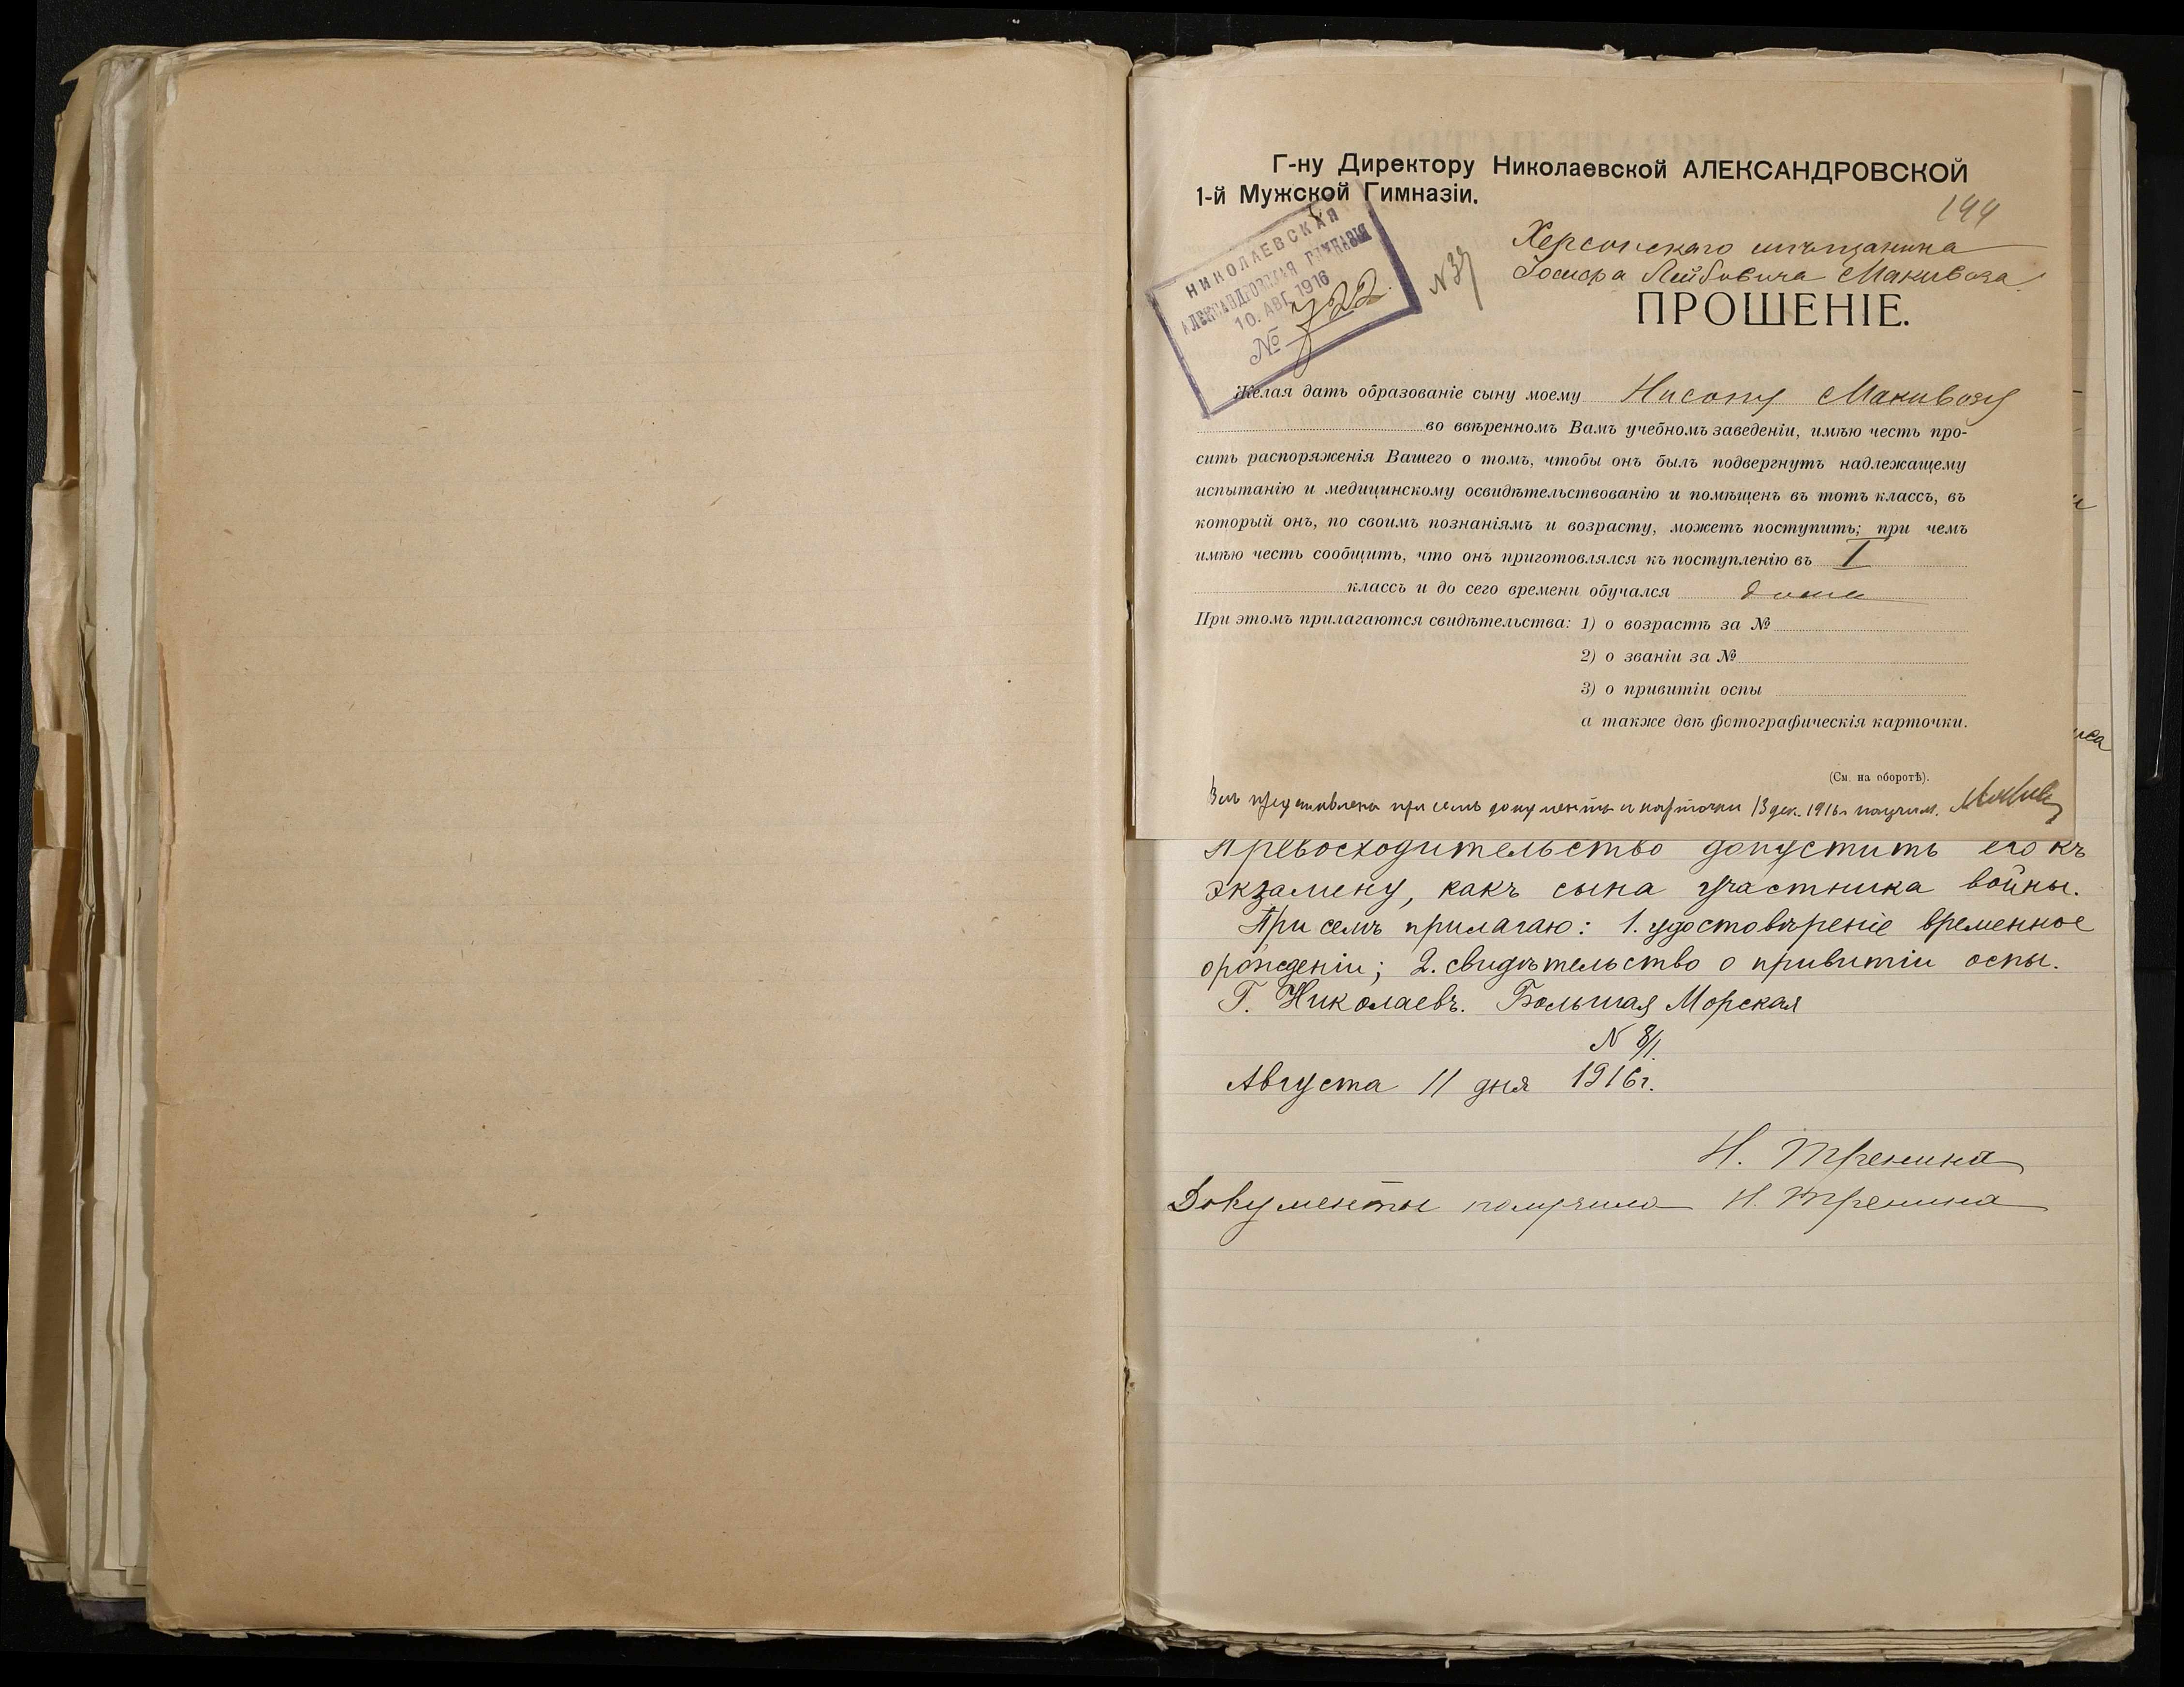 Г-ну Директору Николаевской АЛЕКСАНДРОВСКОЙ
1-й Мужской Гимназіи.
144
НИКОЛАЕВСКАЯ
АЛЕКСАНДРОВСКАЯ ГИМНАЗІЯ
10. АВГ. 1916
№ 722.
Херсонскаго мѣщанина
Іосифа Лейбовича Макивоза
ПРОШЕНІЕ.
Желая дать образованіе сыну моему Нисону Макивозу
во ввѣренномъ Вамъ учебномъ заведеніи, имѣю честь про-
сить распоряженія Вашего о томъ, чтобы онъ былъ подвергнутъ надлежащему
испытанію и медицинскому освидѣтельствованію и помѣщенъ въ тотъ классъ, въ
который онъ, по своимъ познаніямъ и возрасту, можетъ поступить; при чемъ
имѣю честь сообщить, что онъ приготовлялся къ поступленію въ I
классъ и до сего времени обучался дома
При этомъ прилагаются свидѣтельства: 1) о возрастѣ за №
2) о званіи за №
3) о привитіи оспы
а также двѣ фотографическія карточки.
(См. на оборотѣ).
представлены при семъ документы и карточки 13 дек. 1916 г. получил.
Превосходительство допустить его къ
экзамену, какъ сына участника войны.
При семъ прилагаю: 1. удостовѣреніе временное
о рожденіи; 2. свидѣтельство о привитіи оспы.
Г. Николаевъ. Большая Морская
N 81.
Августа 11 дня 1916 г.
Н. Тренина
Документы получила Н. Тренина